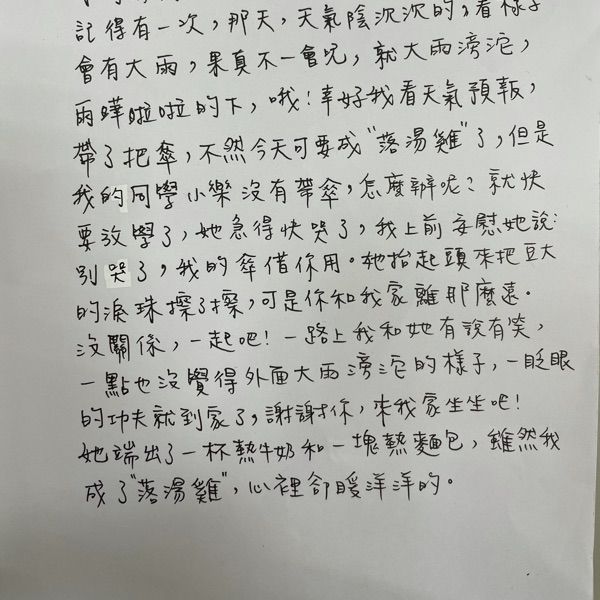 記得有一次，那天，天氣陰沉沉的，看樣子
會有大雨，果真不一會兒，就大雨滂沱，
雨嘩啦啦的下，哦！幸好我看天氣預報，
帶了把傘，不然今天可要成"落湯雞"了，但是
我的同學小樂沒有帶傘，怎麼辦呢？就快
要放學了，她急得快哭了，我上前安慰她說：
別哭了，我的傘借你用。她抬起頭來把豆大
的淚珠擦了擦，可是你和我家離那麼遠。
沒關係，一起吧！一路上我和她有說有笑，
一點也沒覺得外面大雨滂沱的樣子，一眨眼
的功夫就到家了，謝謝你，來我家坐坐吧！
她端出了一杯熱牛奶和一塊熱麵包，雖然我
成了"落湯雞"，心裡卻暖洋洋的。